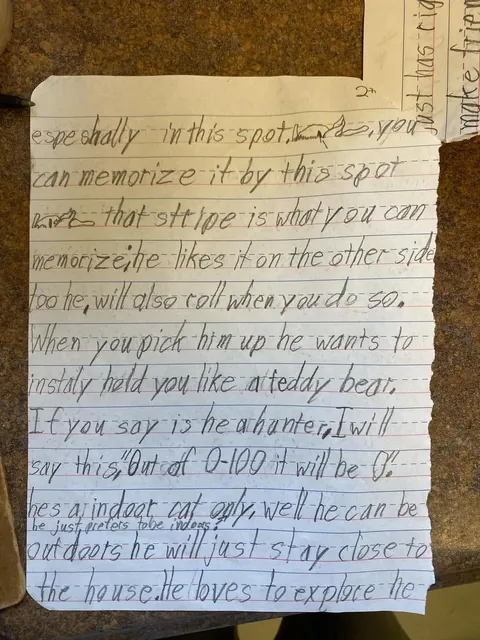 2
espechally in this spot. , you
can memorize it by this spot
that stripe is what you can
memorize, he likes it on the other side
too he, will also roll when you do so.
When you pick him up he wants to
instaly hold you like a teddy bear.
If you say is he a hunter, I will
say this, "Out of 0-100 it will be 0".
hes a indoor cat only, well he can be
he just prefers to be indoors.
outdoors he will just stay close to
the house. He loves to explore he
ust has rig
make frien